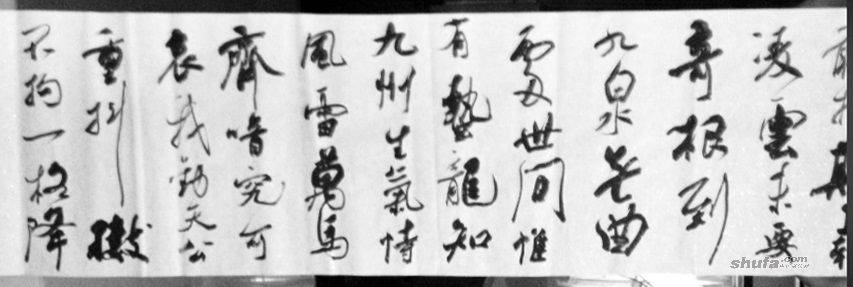 凌雲未要
奇根到
九泉無曲
處世間惟
有蟄龍知
九州生氣恃
風雷萬馬
齊喑究可
哀我勸天公
重抖擻
不拘一格降
shufa.com